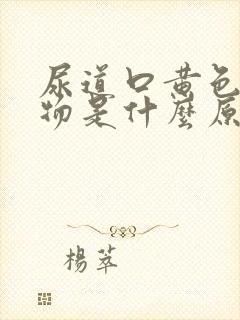 尿道口黄色
物是什麼原
楊萃